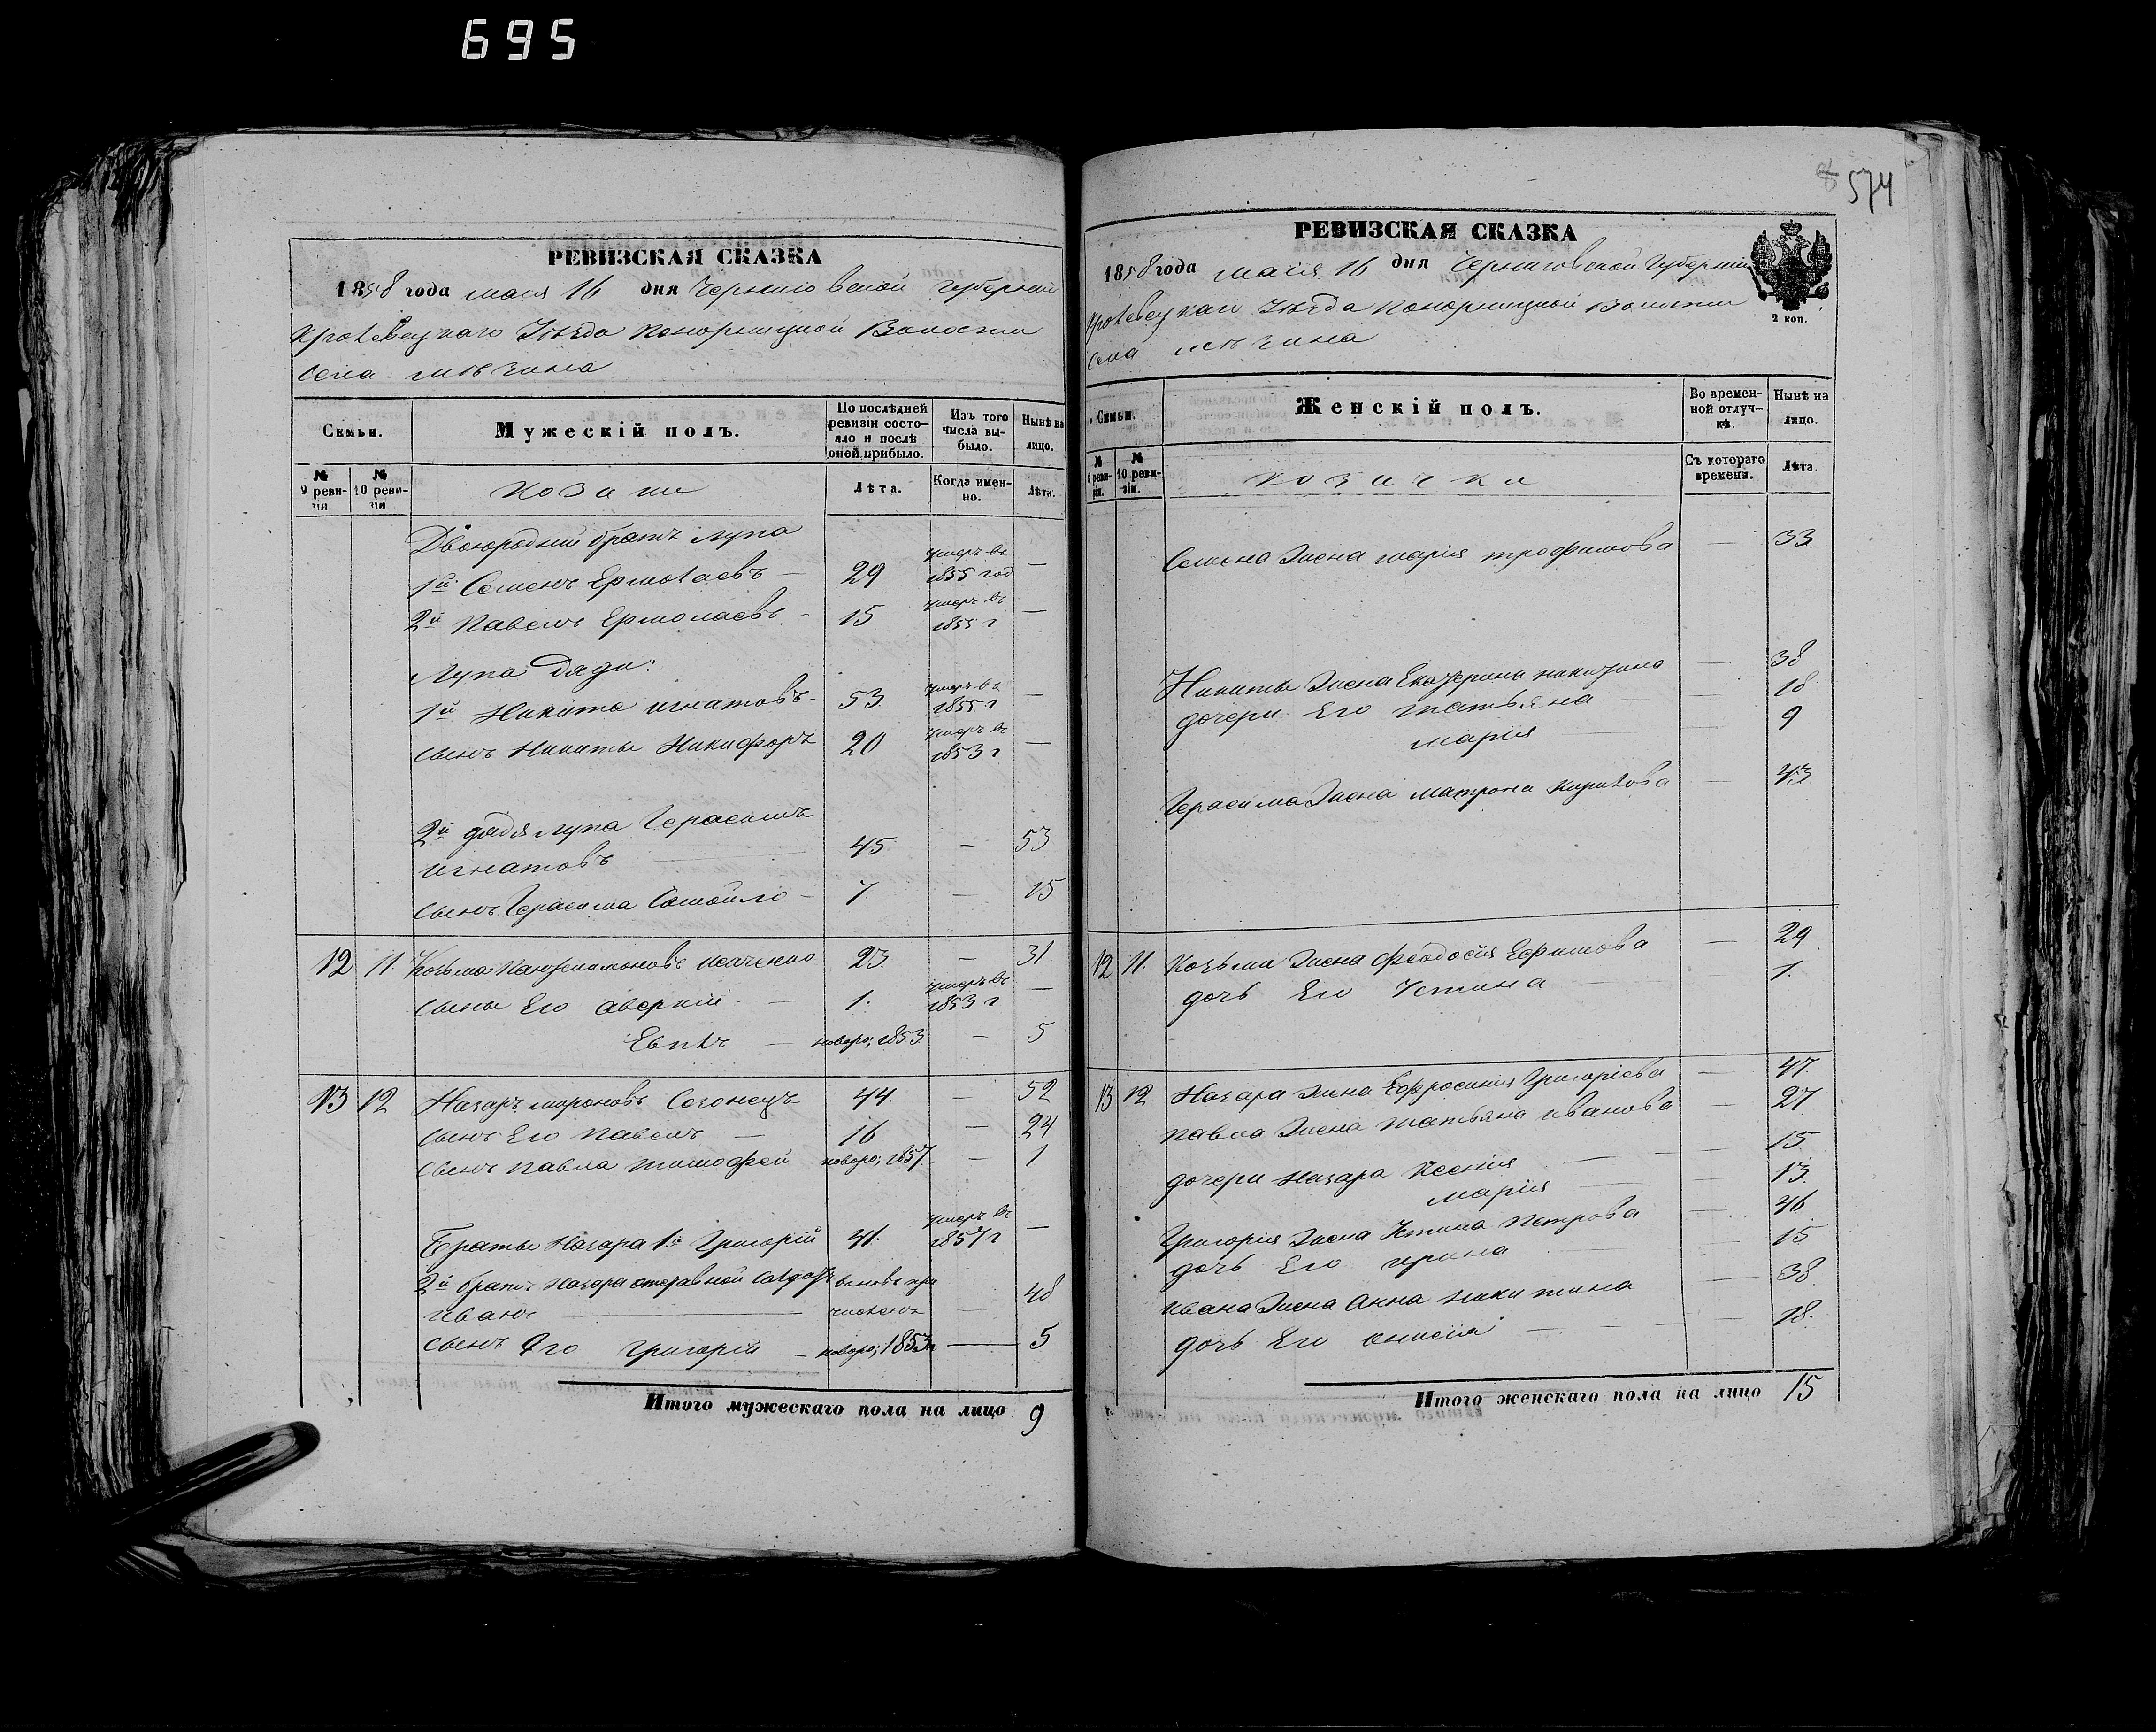 695
РЕВИЗСКАЯ СКАЗКА
1858 года мая 16 дня Черниговской Губерніи
Кролевецкаго Уѣзда Понорницкой Волости
Села
Семьи.
Мужескій полъ.
По послѣдней ревизіи состояло и послѣ оной прибыло.
Изъ того числа выбыло.
Нынѣ на лицо.
№ 9 ревизіи
№ 10 ревизіи
Козаки
Лѣта.
Когда именно.
Лѣта.
Двоюродніи братъ Лупа
1й Семенъ Ермолаевъ — 29 умеръ въ 1855 год —
2й Павелъ Ермолаевъ - 15 умеръ въ 1855 г —
Лупа дяди:
1й Никита Игнатовъ - 53 умеръ въ 1855 г —
сынъ Никиты Никифоръ 20 умеръ въ 1853 г —
2й дядя Лупа Герасимъ
Игнатовъ — 45 — 53
сынъ Герасима Самойло - 7. — 15
12 11. Козьма Пантелимоновъ 23 — 31
сыны Его Аверкій — 1. умеръ въ 1853 г —
— новоро; 1853 — 5
13 12 Назаръ Мироновъ 44. — 52
сынъ Его Павелъ — 16 — 24
сынъ Павла Тимофей новоро; 1857. — 1
Братья Назара 1й Григорій 41. умеръ въ 1857 г —
2й братъ Назара отставной
Иванъ — — 48
сынъ Его Григорій — новоро; 1853 г — 5
Итого мужескаго пола на лицо 9
574
РЕВИЗСКАЯ СКАЗКА
1858 года мая 16 дня Черниговской Губерніи
Кролевецкаго Уѣзда Понорницкой Волости
Села
2 коп.
Семьи.
Женскій полъ.
Во временной отлучкѣ.
Нынѣ на лицо.
№ 9 ревизіи.
№ 10 ревизіи.
Козачки
Съ котораго времени.
Лѣта.
Семена жена Марія Трофимова — 33
Никиты жена Екатерина Никитина — 38
дочери Его Татьяна — 18
Марія — 9
Герасима жена Матрона Кирилова — 43
12 11. Козьми жена Феодосія Ефимова — 29
дочь Его Устина — 1.
13 12 Назара жена Ефросинія Григоріева — 47
Павла жена Татьяна Иванова — 27
дочери Назара Ксенія — 15
Марія — 13
Григорія жена Устина Петрова — 46
дочь Его Ирина — 15
Ивана жена Анна Никитина — 38
дочь Его — 18.
Итого женскаго пола на лицо 15